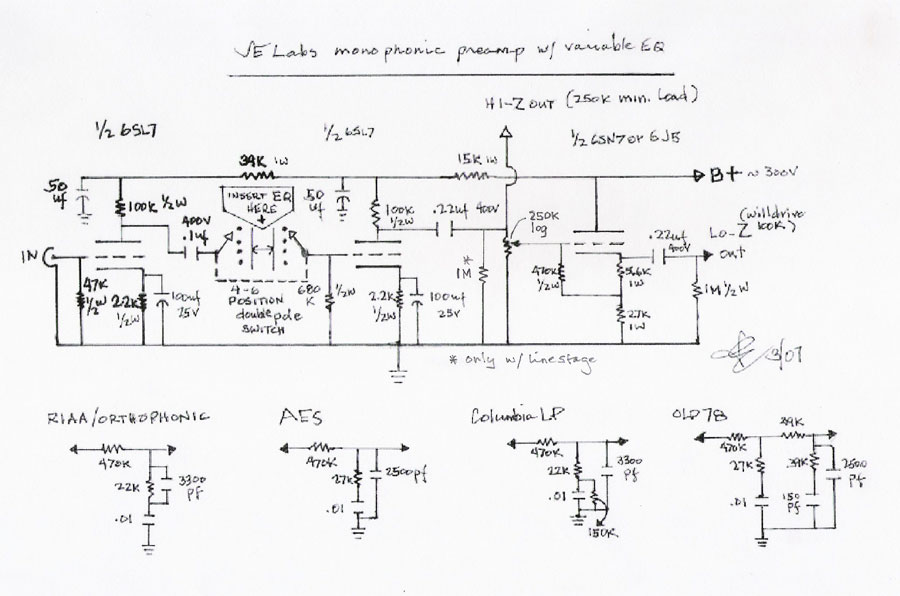 JE Labs monophonic preamp w/ variable EQ
HI-Z OUT (250K min. load)
1/2 6SL7
1/2 6SL7
1/2 6SN7 or 6J5
39K 1W
15K 1W
B+ ~ 300V
50
uf
100K 1/2W
400V
.1uf
INSERT EQ
HERE
50
uf
100K
1/2W
.22uf 400V
250K
log
LO-Z
(will drive
100K)
out
.22uf
400V
IN
47K
1/2W
2.2K
1/2W
100uf
25V
4-6
POSITION
double pole
SWITCH
680
K
1/2W
2.2K
1/2W
100uf
25V
*
1M
470K
1/2W
5.6K
1W
27K
1W
1M 1/2W
* only w/ linestage
3/07
RIAA/ORTHOPHONIC
470K
22K
3300
pf
.01
AES
470K
27K
2500pf
.01
Columbia LP
470K
22K
3300
pf
.01
150K
OLD 78
470K
39K
27K
39K
2500
pf
.01
150
pf